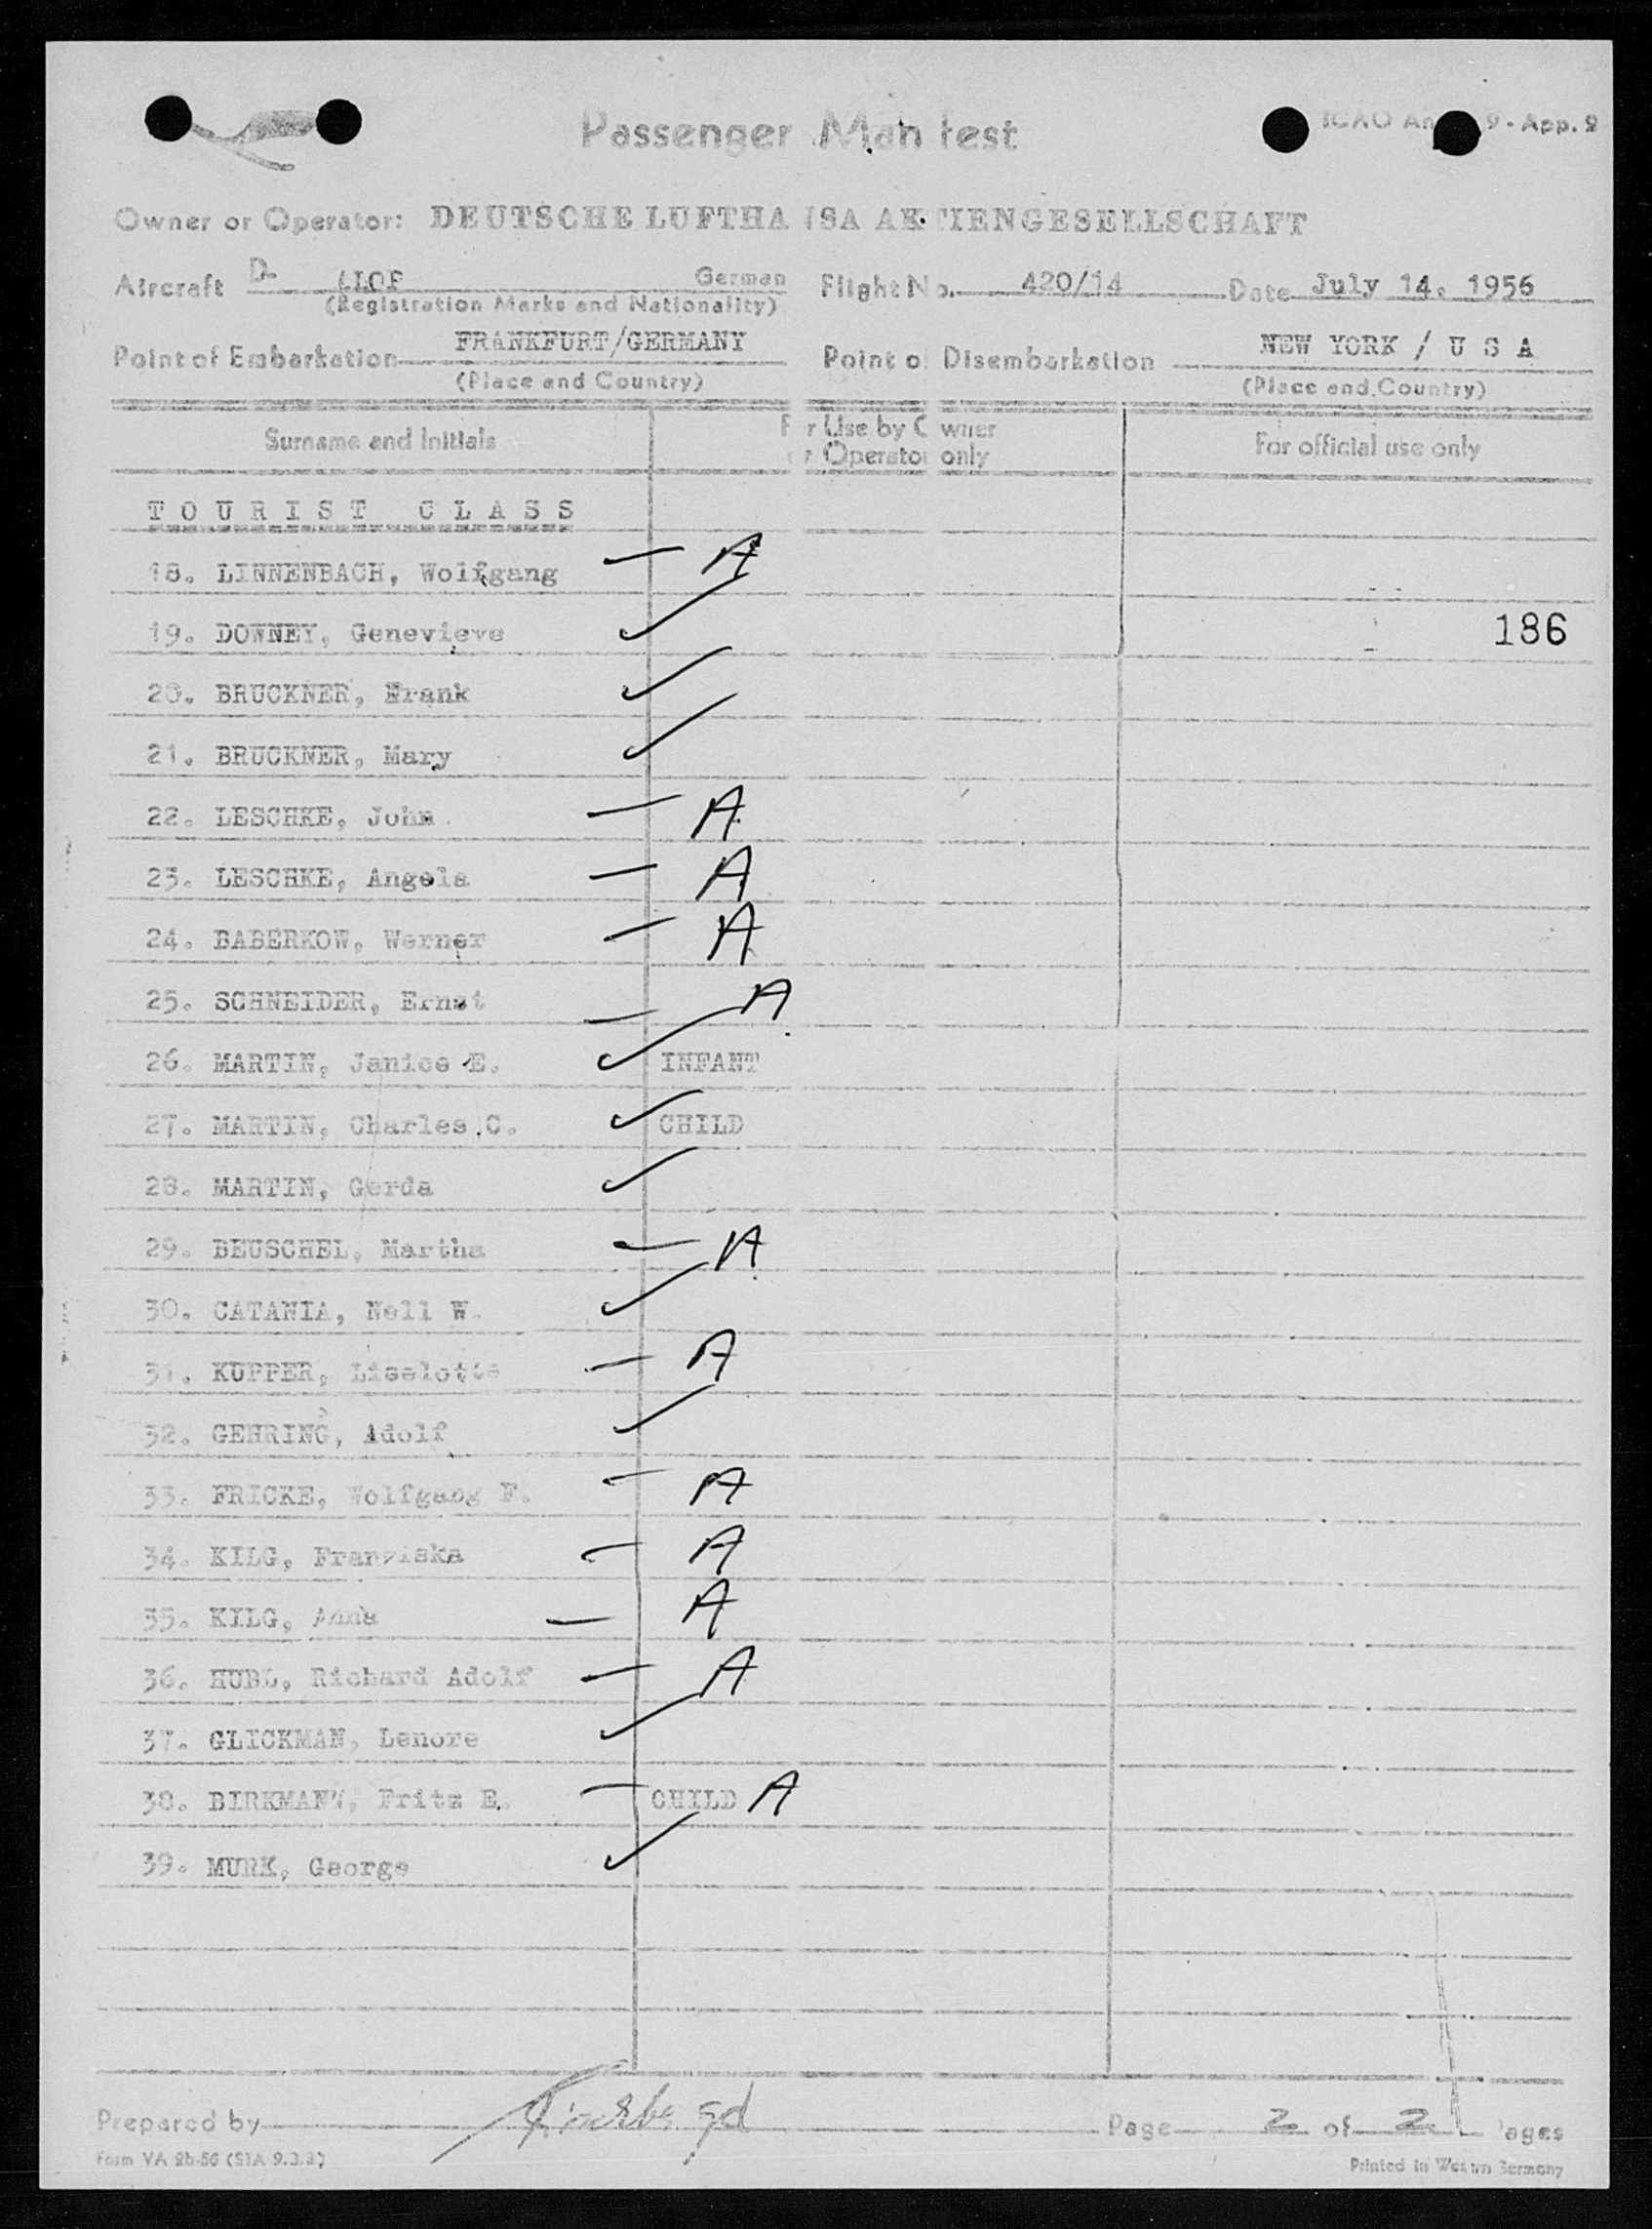 Passenger Man fest
ICAO An 9 - App. 2
Owner or Operator: DEUTSCHE LUFTHA SA AKTIENGESELLSCHAFT
Aircraft D- German Flight No. 420/14 Date July 14. 1956
(Registration Marks and Nationality)
Point of Embarkation FRANKFURT/GERMANY Point of Disembarkation NEW YORK / U S A
(Place and Country) (Place and Country)
Surname and Initials For Use by Owner or Operator only For official use only
TOURIST CLASS
18. LINNENBACH, Wolfgang — A
19. DOWNEY, Genevieve ✓ 186
20. BRUCKNER, Frank ✓
21. BRUCKNER, Mary ✓
22. LESCHKE, John — A
23. LESCHKE, Angela — A
24. BABERKOW, Werner — A
25. SCHNEIDER, Ernst — A
26. MARTIN, Janice E. ✓ INFANT
27. MARTIN, Charles C. ✓ CHILD
28. MARTIN, Gerda ✓
29. BEUSCHEL, Martha — A
30. CATANIA, Nell W. ✓
31. KUPPER, Liselotte — A
32. GEHRING, Adolf ✓
33. FRICKE, Wolfgang F. — A
34. KILG, Franziska — A
35. KILG, Anna — A
36. HUBL, Richard Adolf — A
37. GLICKMAN, Lenore ✓
38. BIRKMANN, Fritz E. — CHILD A
39. MURK, George ✓
Prepared by Page 2 of 2 Pages
Form VA 2b-56 (STA 9.3.2)
Printed in Western Germany